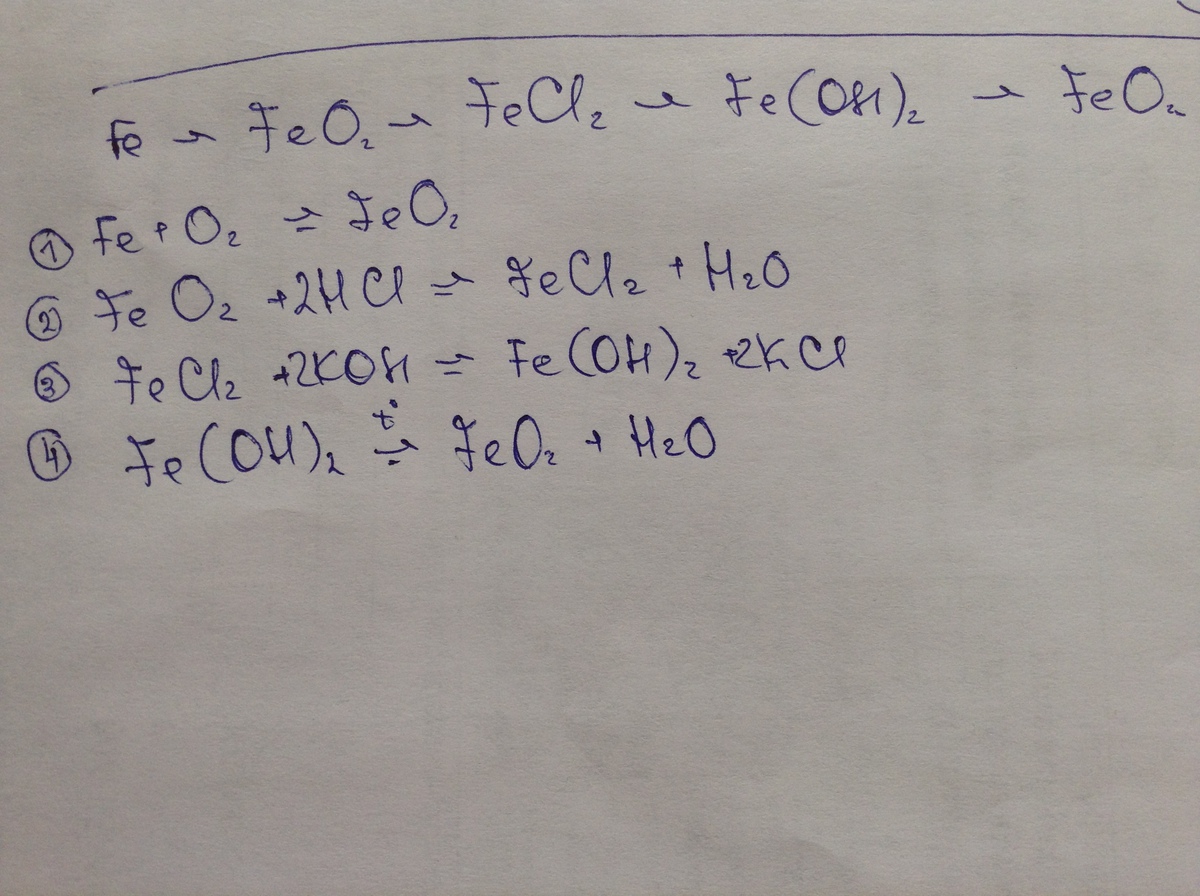 Fe → FeO₂ → FeCl₂ → Fe(OH)₂ → FeO₂
① Fe + O₂ = FeO₂
② FeO₂ + 2HCl = FeCl₂ + H₂O
③ FeCl₂ + 2KOH = Fe(OH)₂ + 2KCl
④ Fe(OH)₂ =t° FeO₂ + H₂O